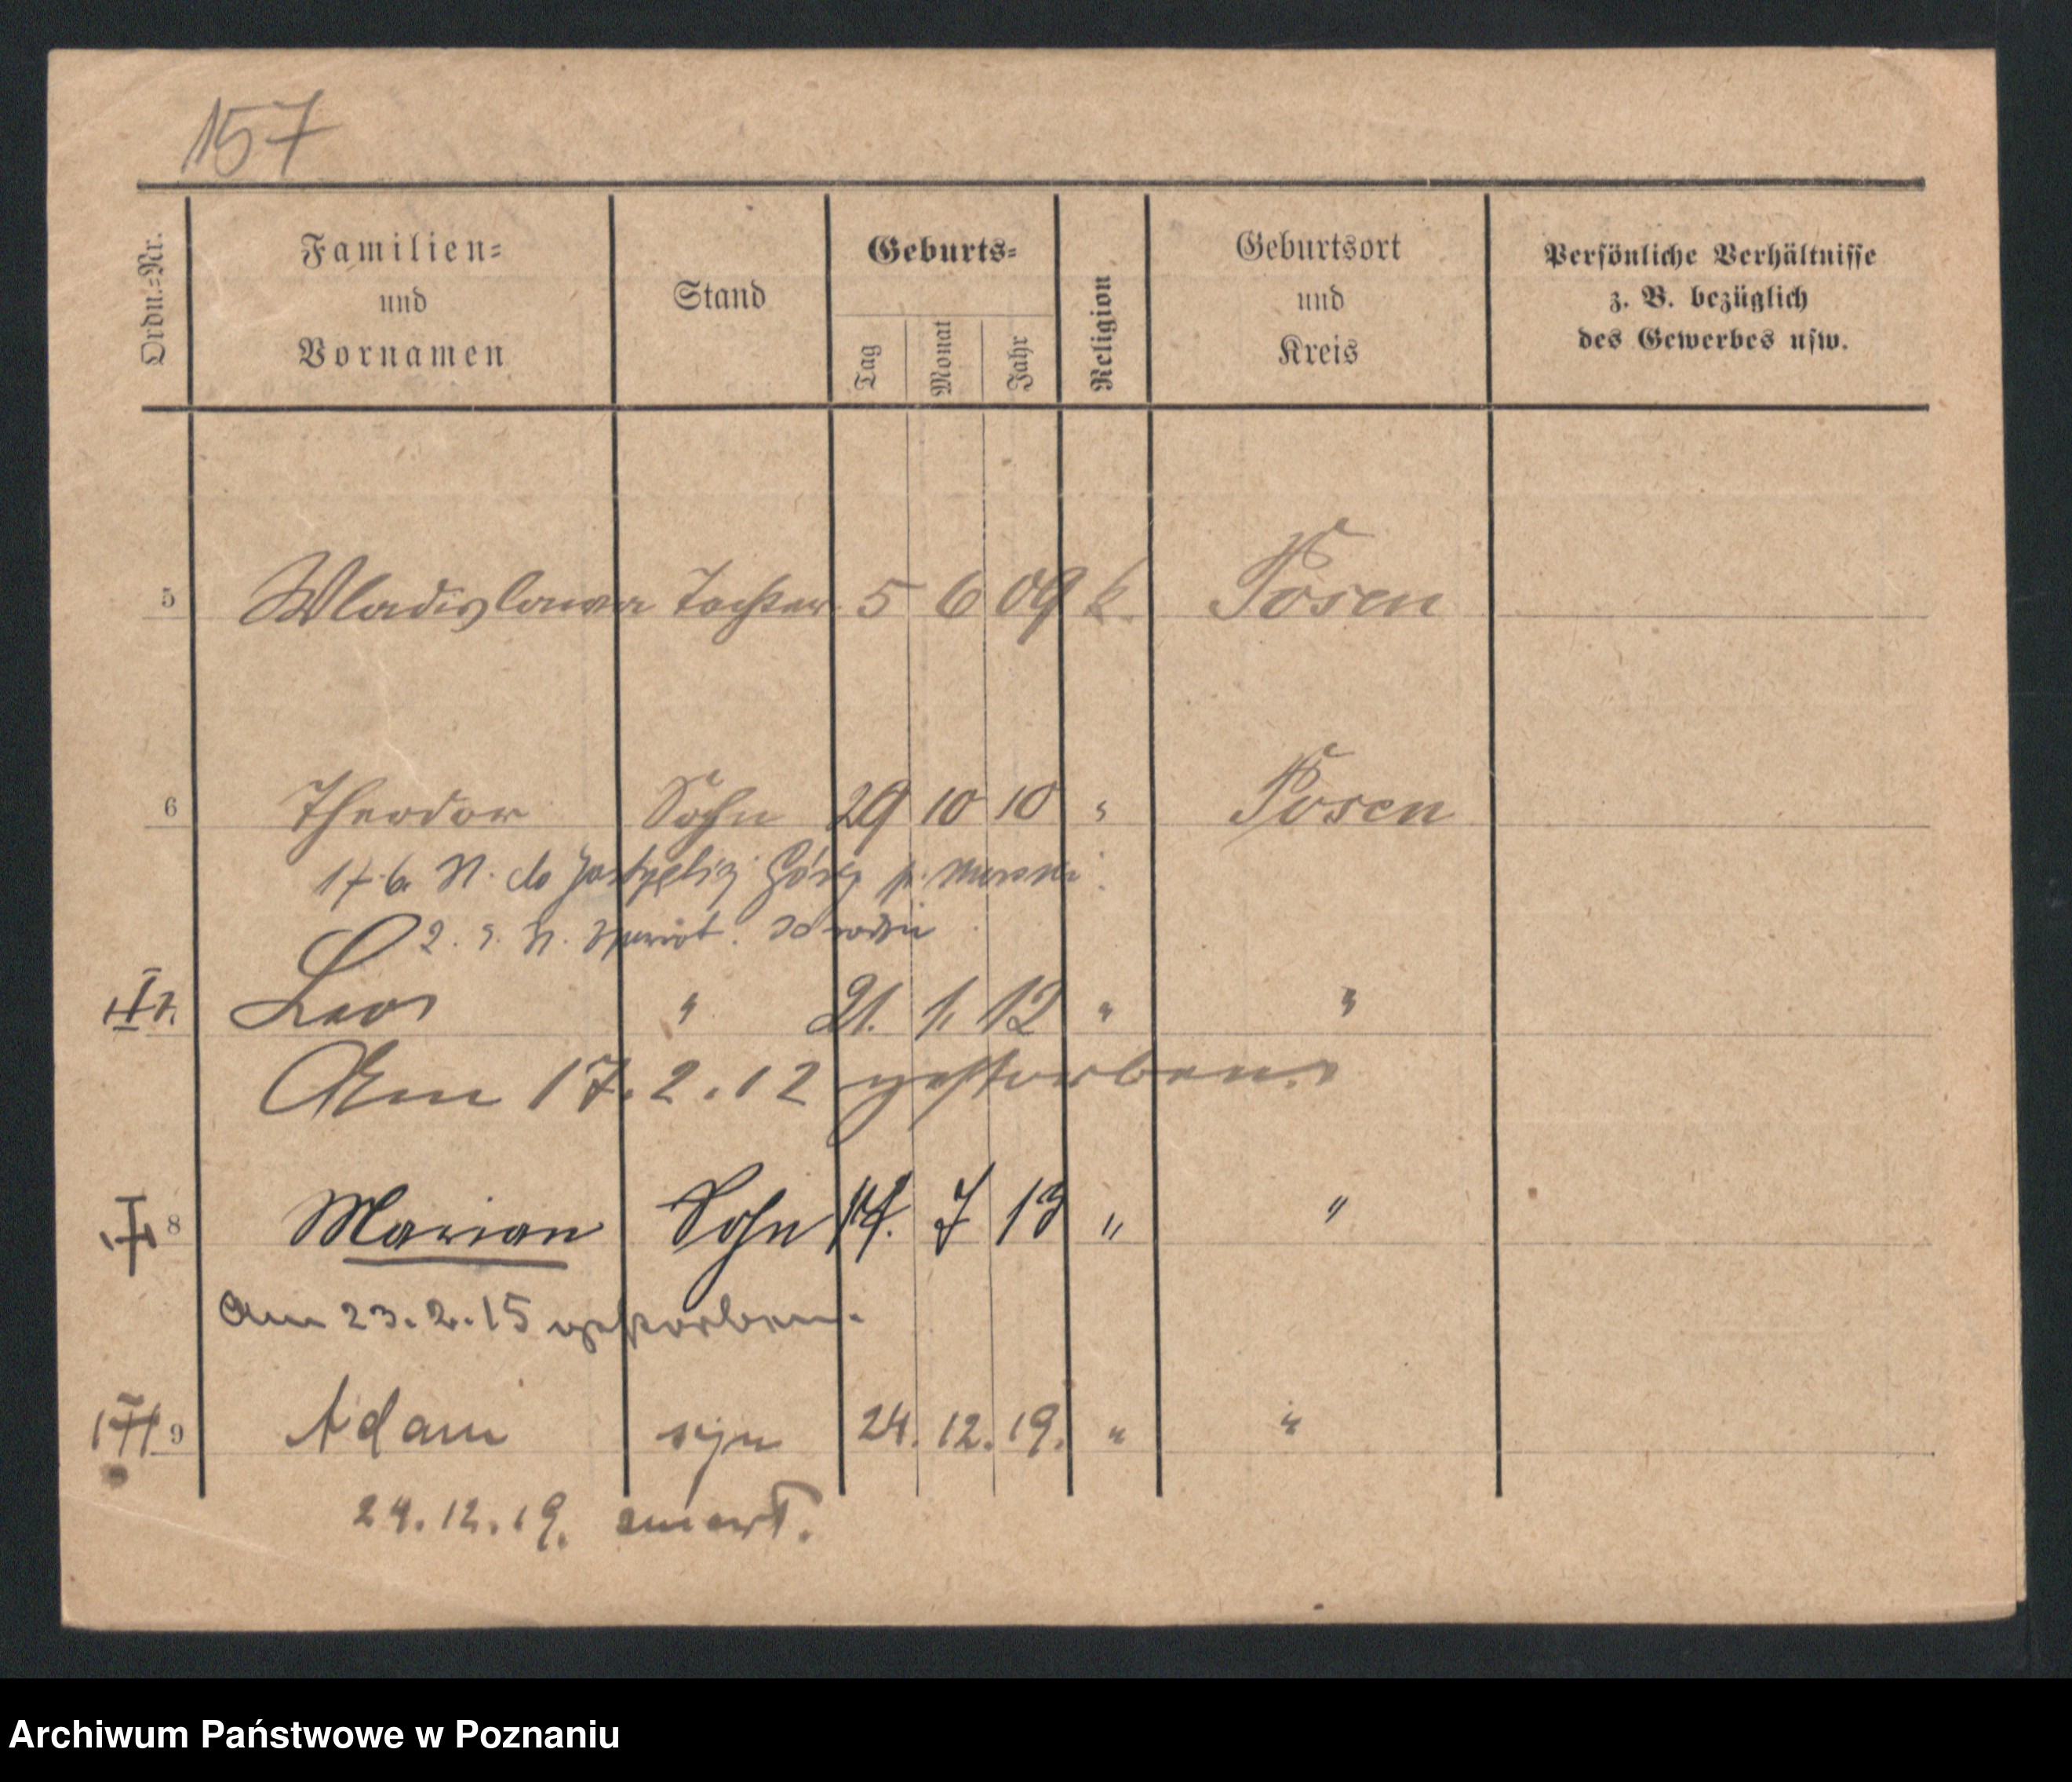 157
Ordn.=Nr. Familien= und Vornamen Stand Geburts= Tag Monat Jahr Religion Geburtsort und Kreis Persönliche Verhältnisse z. B. bezüglich des Gewerbes usw.
5 Wladislawa Tochter 5 6 09 k. Posen
6 Theodor Sohn 29 10 10 " Posen
17. 6. do Góry p.
2.
7. Leo " 21. 1. 12 " "
Am 17.2.12 gestorben.
8 Marian Sohn 14. 7 13 " "
Am 23.2.15 gestorben.
9 Adam syn 24. 12. 19. " "
24.12.19. zmarł.
Archiwum Państwowe w Poznaniu